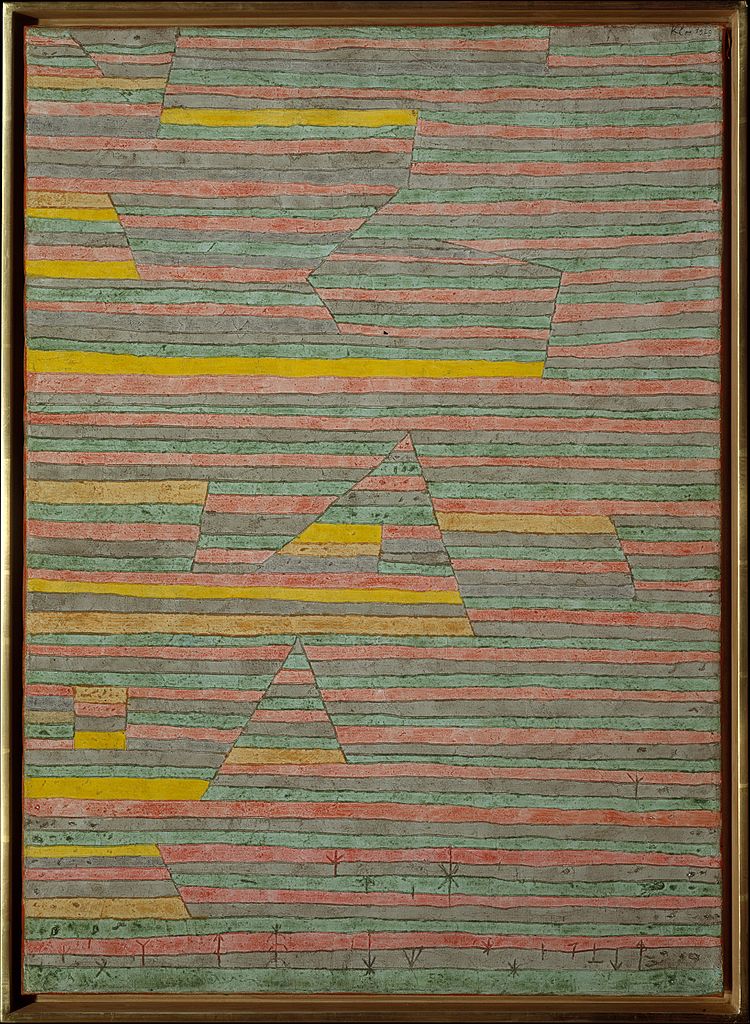 Klee 1929